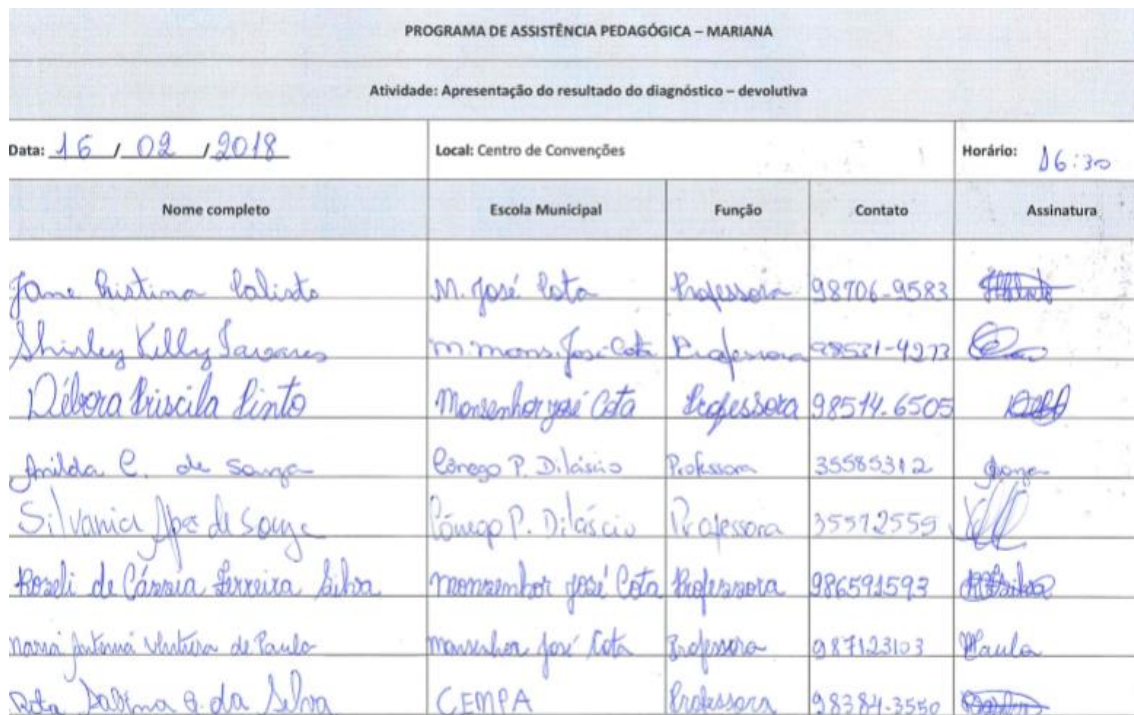 PROGRAMA DE ASSISTÊNCIA PEDAGÓGICA – MARIANA
Atividade: Apresentação do resultado do diagnóstico – devolutiva
Data: 16 / 02 / 2018 Local: Centro de Convenções Horário: 16:30
Nome completo Escola Municipal Função Contato Assinatura
Jane Cristina Calisto M. José Cota Professora 98706-9583
Shirley Kelly Tavares M. Mons. José Cota Professora 98531-4273
Débora Priscila Pinto Monsenhor José Cota Professora 98514.6505
Anilda C. de Souza Cônego P. Diláscio Professora 35585312 Souza
Silvania Apª de Souza Cônego P. Diláscio Professora 35572559
Roseli de Cássia Ferreira Silva Monsenhor José Cota Professora 986591593
Maria Antônia Ventura de Paula Monsenhor José Cota Professora 987123103 Paula
Rita Sabina da Silva CEMPA Professora 98384-3550